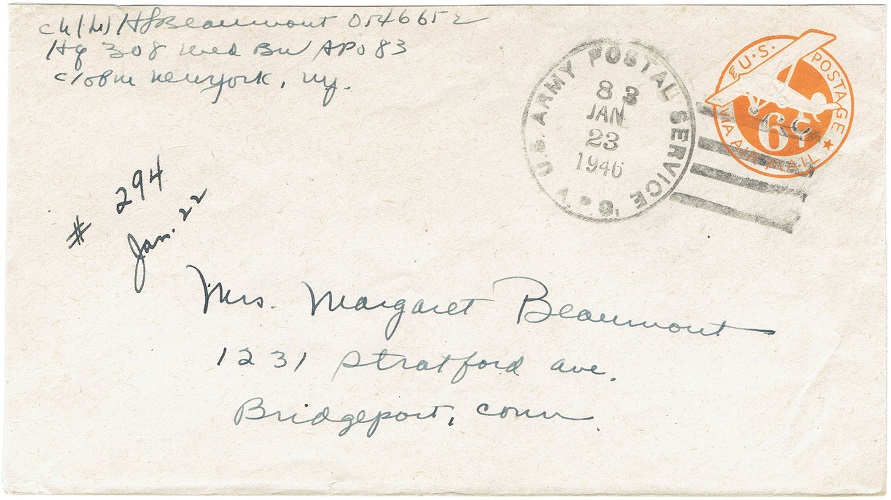 ch (w) HS Beaumont 0546652
Hq 308 Med Bn APO 83
c/o Pm Newyork, ny.
U.S. ARMY POSTAL SERVICE
A.P.O.
83
JAN
23
1946
U.S. POSTAGE
VIA AIR MAIL
6¢
# 294
Jan. 22
Mrs. Margaret Beaumont
1231 Stratford ave.
Bridgeport, Conn.